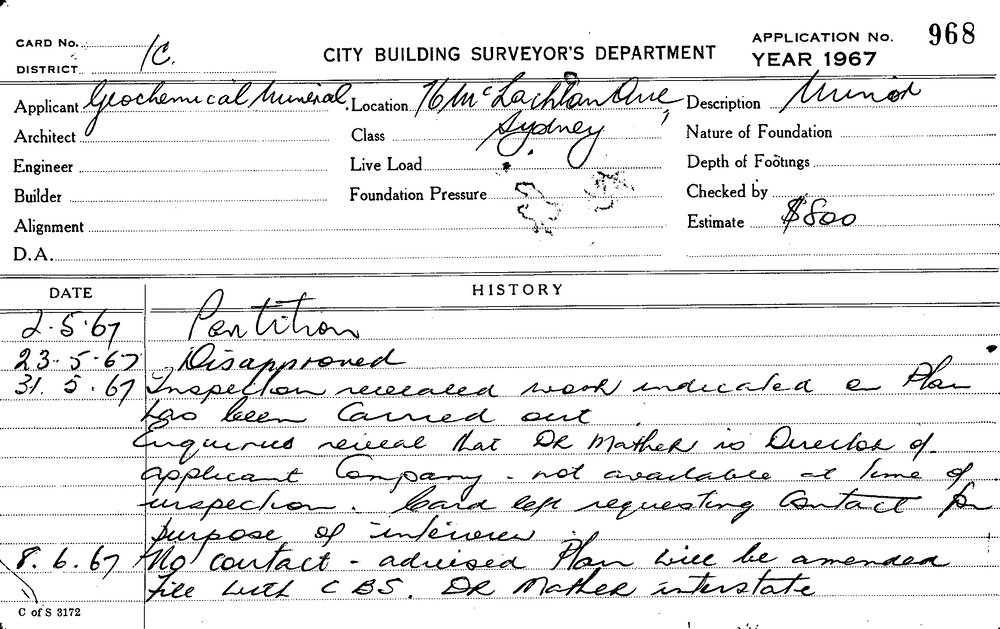 CARD No. 1C. CITY BUILDING SURVEYOR'S DEPARTMENT APPLICATION No. 968
DISTRICT YEAR 1967
Applicant Geochemical Mineral. Location 76 McLachlan Ave, Description Minor
Architect Class Sydney Nature of Foundation
Engineer Live Load Depth of Footings
Builder Foundation Pressure Checked by
Alignment Estimate $800
D.A.
DATE HISTORY
2.5.67 Partition
23.5.67 Disapproved
31.5.67 Inspection revealed work indicated on Plan
has been Carried out
Enquiries reveal that DR Mather is Director of
applicant Company - not available at time of
inspection. Card left requesting Contact for
purpose of interview
8.6.67 No contact - advised Plan will be amended
File with CBS. DR Mather interstate
C of S 3172